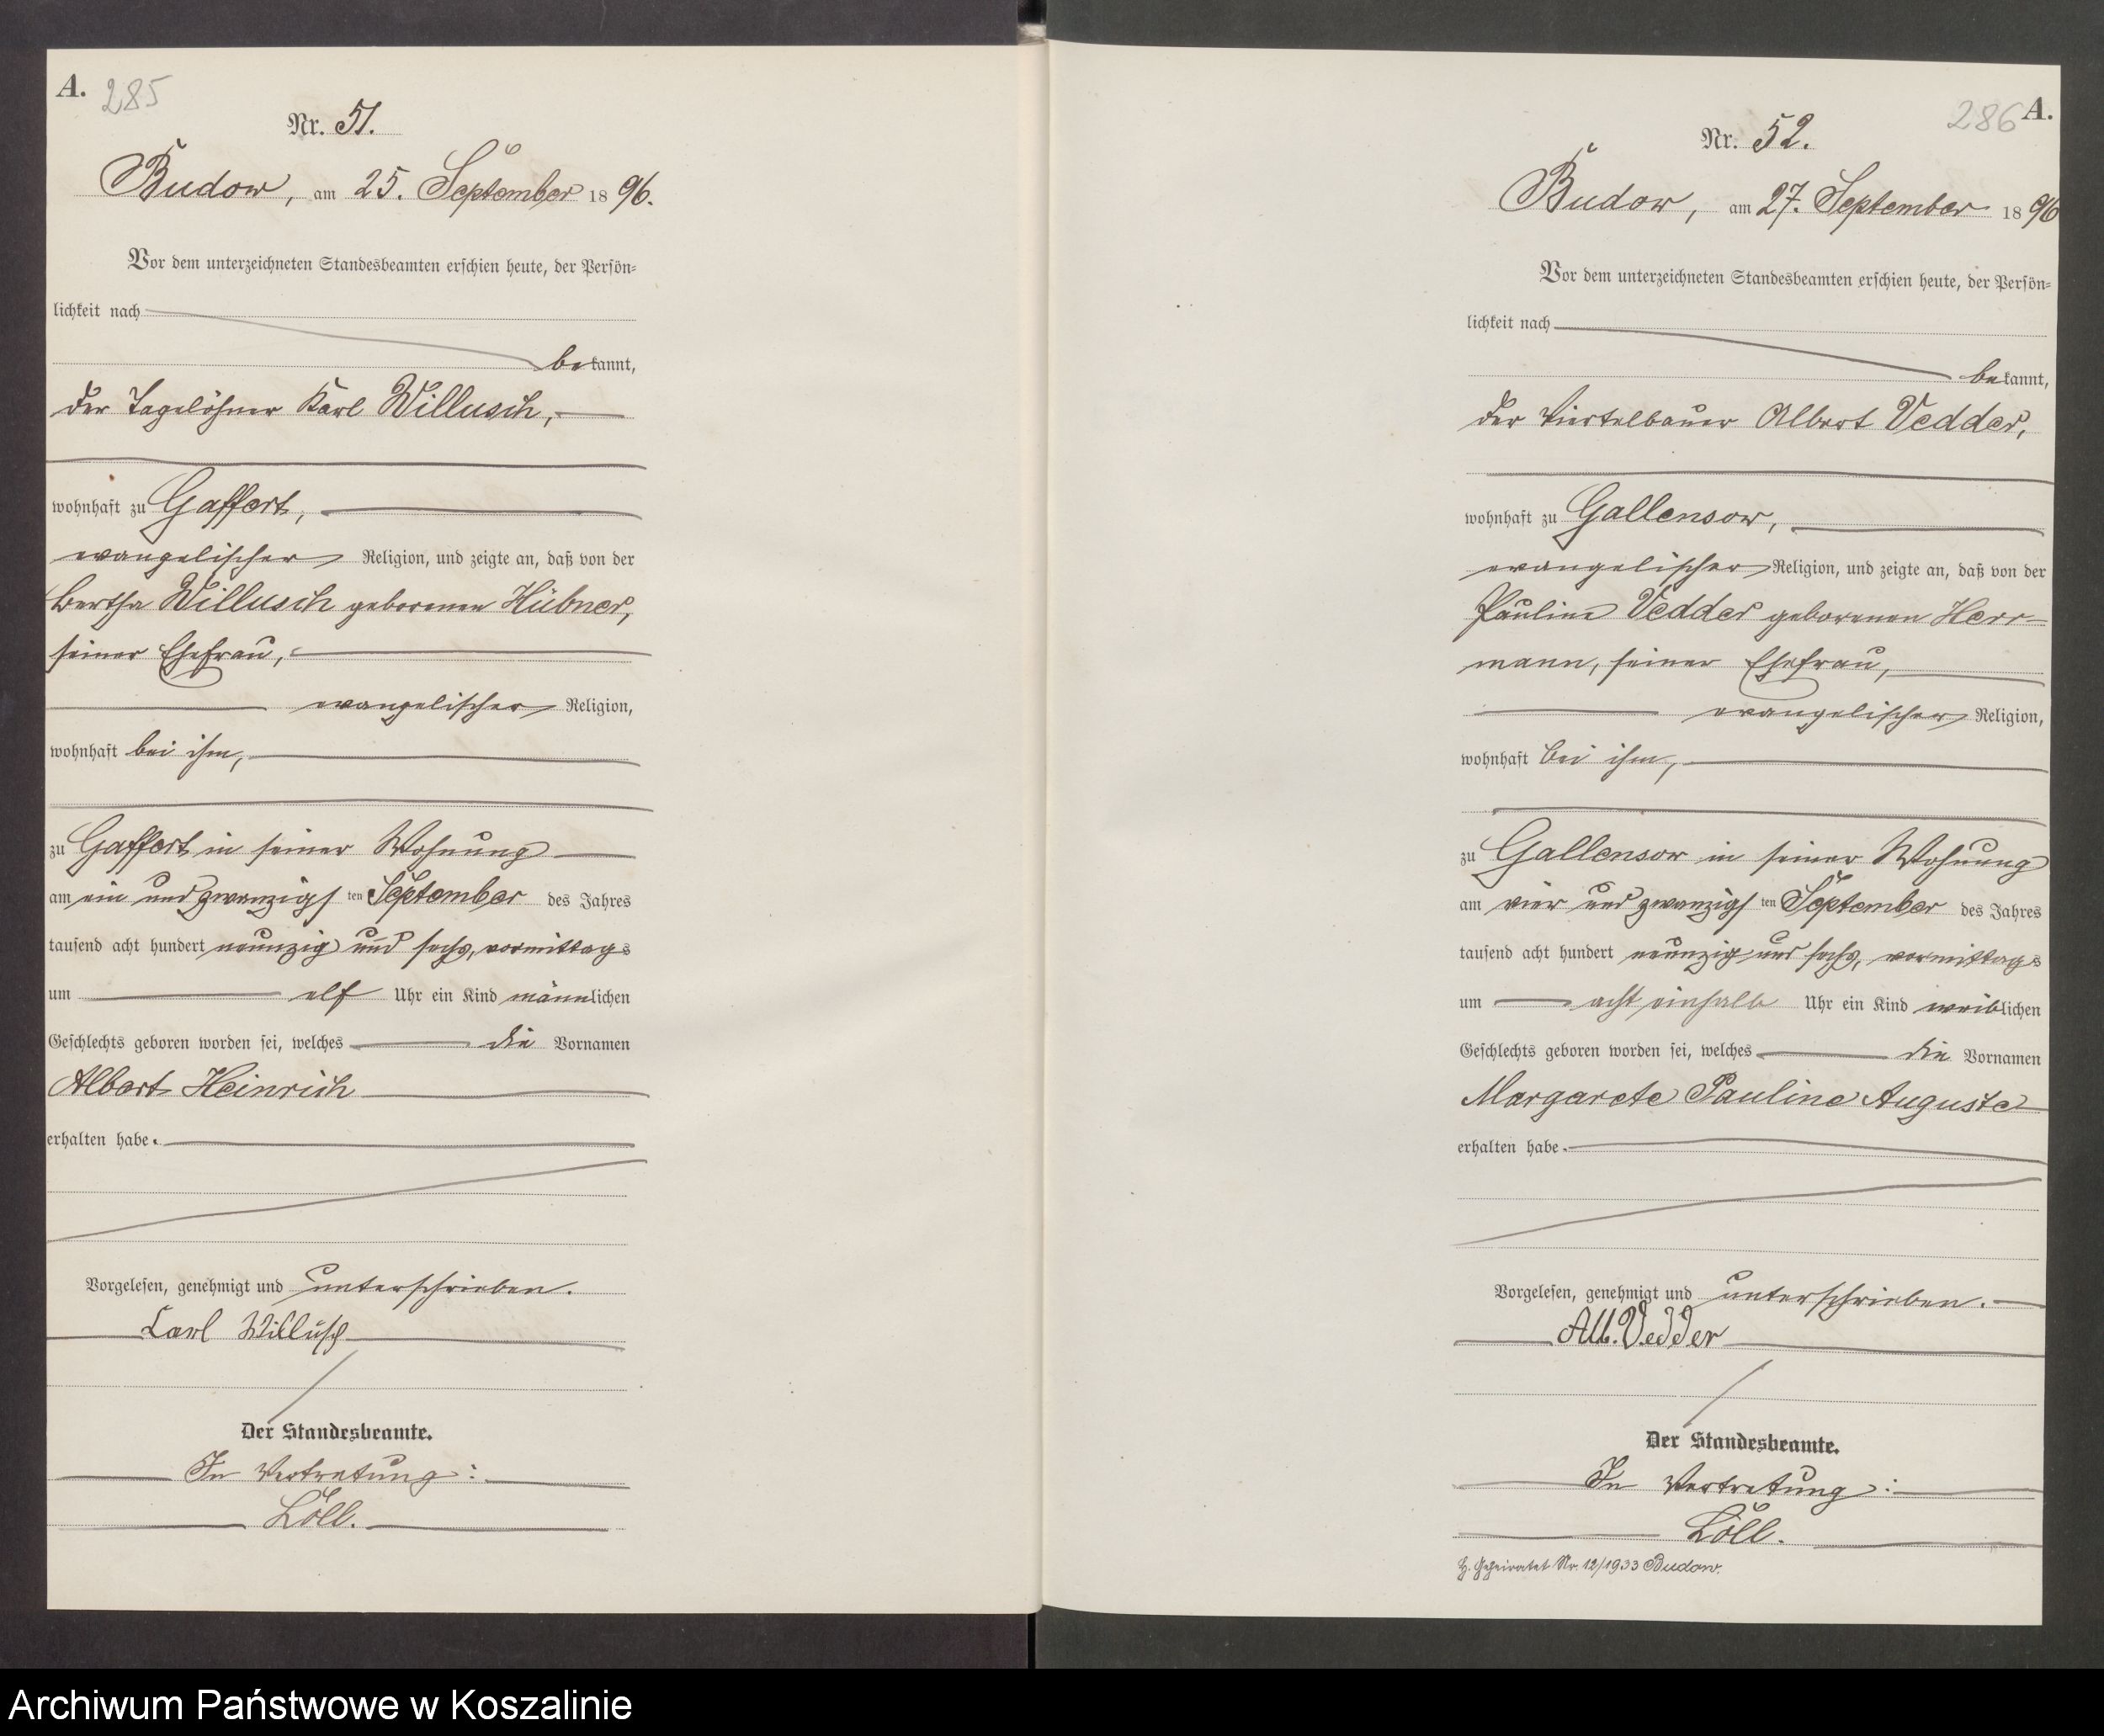 A. 285
Nr. 51.
Budow, am 25. September 1896.
Vor dem unterzeichneten Standesbeamten erschien heute, der Persön-
lichkeit nach
bekannt,
der Tagelöhner Karl Willusch,
wohnhaft zu Gaffert,
evangelischer Religion, und zeigte an, daß von der
Bertha Willusch geborenen Hübner,
seiner Ehefrau,
evangelischer Religion,
wohnhaft bei ihm,
zu Gaffert in seiner Wohnung
am ein und zwanzigsten September des Jahres
tausend acht hundert neunzig und sechs, vormittags
um elf Uhr ein Kind männlichen
Geschlechts geboren worden sei, welches die Vornamen
Albert Heinrich
erhalten habe.
Vorgelesen, genehmigt und unterschrieben.
Carl Willusch
Der Standesbeamte.
In Vertretung:
Löll.
286 A.
Nr. 52.
Budow, am 27. September 1896
Vor dem unterzeichneten Standesbeamten erschien heute, der Persön-
lichkeit nach
bekannt,
der Viertelbauer Albert Vedder,
wohnhaft zu Gallensow,
evangelischer Religion, und zeigte an, daß von der
Pauline Vedder geborenen Herr-
mann, seiner Ehefrau,
evangelischer Religion,
wohnhaft bei ihm,
zu Gallensow in seiner Wohnung
am vier und zwanzigsten September des Jahres
tausend acht hundert neunzig und sechs, vormittags
um acht einhalb Uhr ein Kind weiblichen
Geschlechts geboren worden sei, welches die Vornamen
Margarete Pauline Auguste
erhalten habe.
Vorgelesen, genehmigt und unterschrieben.
Alb. Vedder
Der Standesbeamte.
In Vertretung:
Löll.
Geheiratet Nr. 12/1933 Budow.
Archiwum Państwowe w Koszalinie